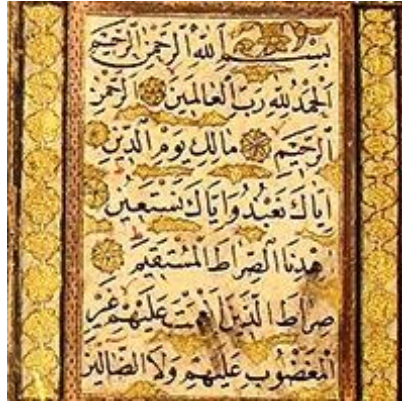 بِسْمِ ٱللهِ ٱلرَّحْمٰنِ ٱلرَّحِيْمِ
اَلْحَمْدُ لِلّٰهِ رَبِّ ٱلْعَالَمِيْنَ ٱلرَّحْمٰنِ
ٱلرَّحِيْمِ مَالِكِ يَوْمِ ٱلدِّيْنِ
اِيَّاكَ نَعْبُدُ وَاِيَّاكَ نَسْتَعِيْنُ
هْدِنَا ٱلصِّرَاطَ ٱلْمُسْتَقِيْمَ
صِرَاطَ ٱلَّذِيْنَ اَنْعَمْتَ عَلَيْهِمْ غَيْرِ
ٱلْمَغْضُوْبِ عَلَيْهِمْ وَلَا ٱلضَّالِّيْنَ